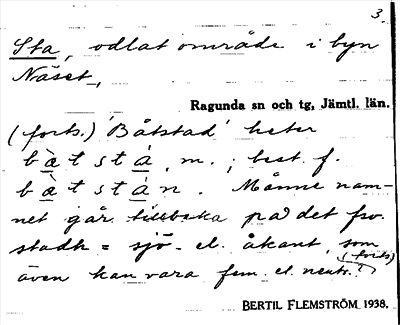 3.
Sta, odlat område i byn
Näset,
Ragunda sn och tg, Jämtl. län.
(forts.) 'Båtstad' heter
bàtstá, m.; best. f.
bàtstán. Månne nam-
net går tillbaka på det fvo
stadh = sjö- el. åkant, som
(forts)
även kan vara fem. el. neutr.?
BERTIL FLEMSTRÖM 1938.